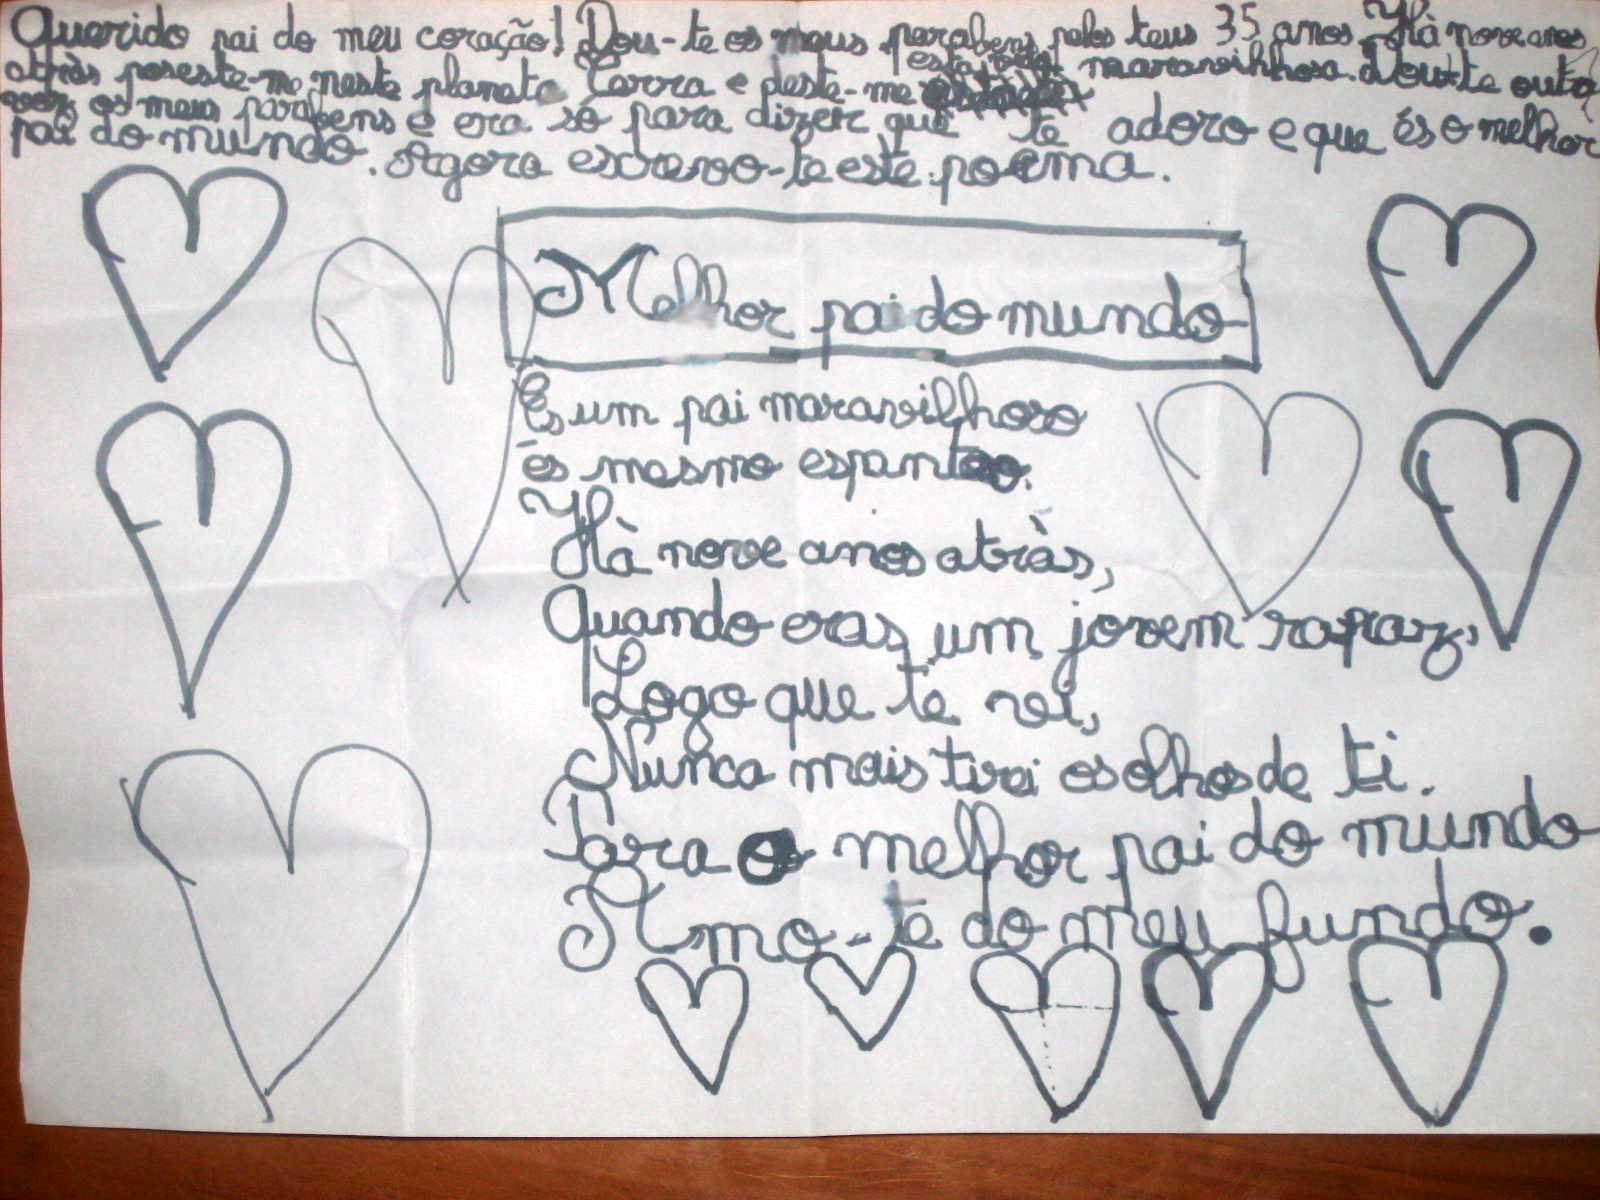 Querido pai do meu coração! Dou-te os meus parabens pelos teus 35 anos. Hà nove anos
atràs poseste-me neste planeta Terra e deste-me esta vida maravilhosa. Dou-te outa
vez os meus parabens e era só para dizer que te adoro e que és o melhor
pai do mundo. Agora escrevo-te este poema.
Melhor pai do mundo
És um pai maravilhoso
és mesmo espantoso.
Hà nove anos atràs,
Quando eras um jovem rapaz,
Logo que te vi,
Nunca mais tirei os olhos de ti.
Para o melhor pai do mundo
Amo-te do meu fundo.